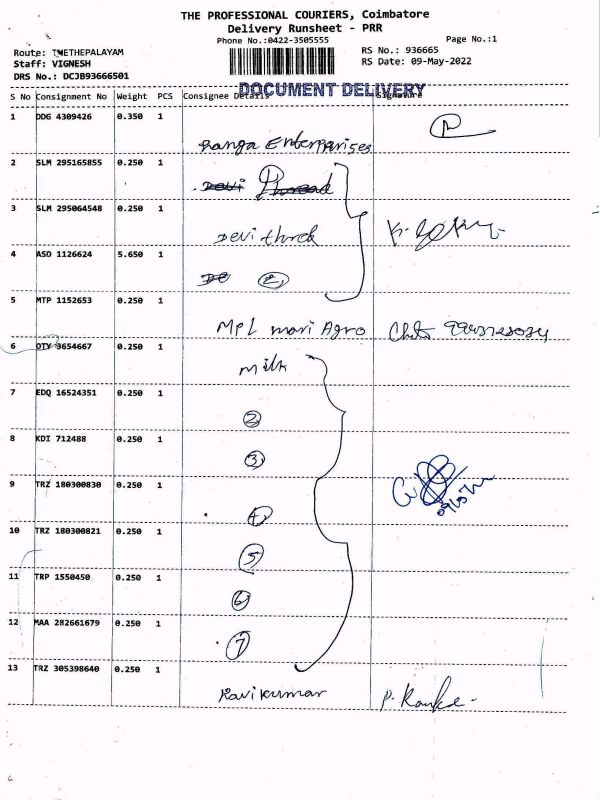 THE PROFESSIONAL COURIERS, Coimbatore
Delivery Runsheet - PRR
Phone No.:0422-3505555
Page No.:1
Route: TMETHEPALAYAM
RS No.: 936665
Staff: VIGNESH
RS Date: 09-May-2022
DRS No.: DCJB93666501
DOCUMENT DELIVERY
S No Consignment No Weight PCS Consignee Details Signature
1 DDG 4309426 0.350 1
Ranga Enterprises
2 SLM 295165855 0.250 1
3 SLM 295064548 0.250 1
Devi
4 ASD 1126624 5.650 1
2
5 MTP 1152653 0.250 1
MPL mari Agro
6 OTY 3654667 0.250 1
milk
7 EDQ 16524351 0.250 1
2
8 KDI 712488 0.250 1
3
9 TRZ 180300830 0.250 1
4
10 TRZ 180300821 0.250 1
5
11 TRP 1550450 0.250 1
6
12 MAA 282661679 0.250 1
7
13 TRZ 305398640 0.250 1
Ravikumar